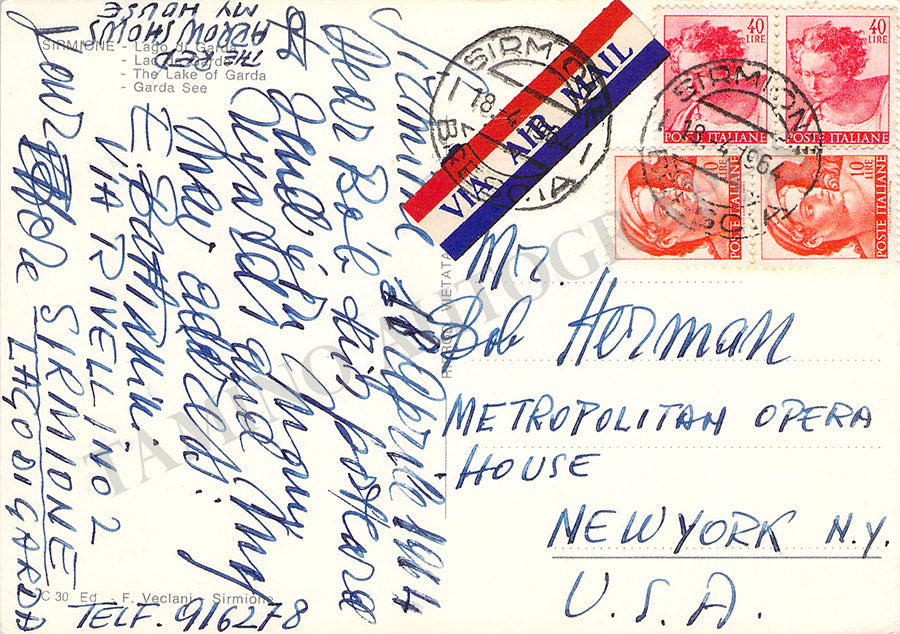 SIRMIONE - Lago di Garda
- The Lake of Garda
- Garda See
THE RED
ARROW SHOWS
MY HOUSE
Sirmione 18 Aprile 1964
Dear Bob this
send you many
and my
new address:
E. Bastianini
VIA RINELLINO 2
SIRMIONE
LAGO DI GARDA
TELF. 916278
Your
Ettore
C 30 Ed. - F. Veclani - Sirmione
VIA AIR MAIL
SIRMIONE
18
SIRMIONE
18.4.1964
40 LIRE
POSTE ITALIANE
40 LIRE
POSTE ITALIANE
10 LIRE
POSTE ITALIANE
10 LIRE
POSTE ITALIANE
Mr.
Bob Herman
METROPOLITAN OPERA
HOUSE
NEW YORK N.Y.
U.S.A.
TAMINO AUTOGRAPHS